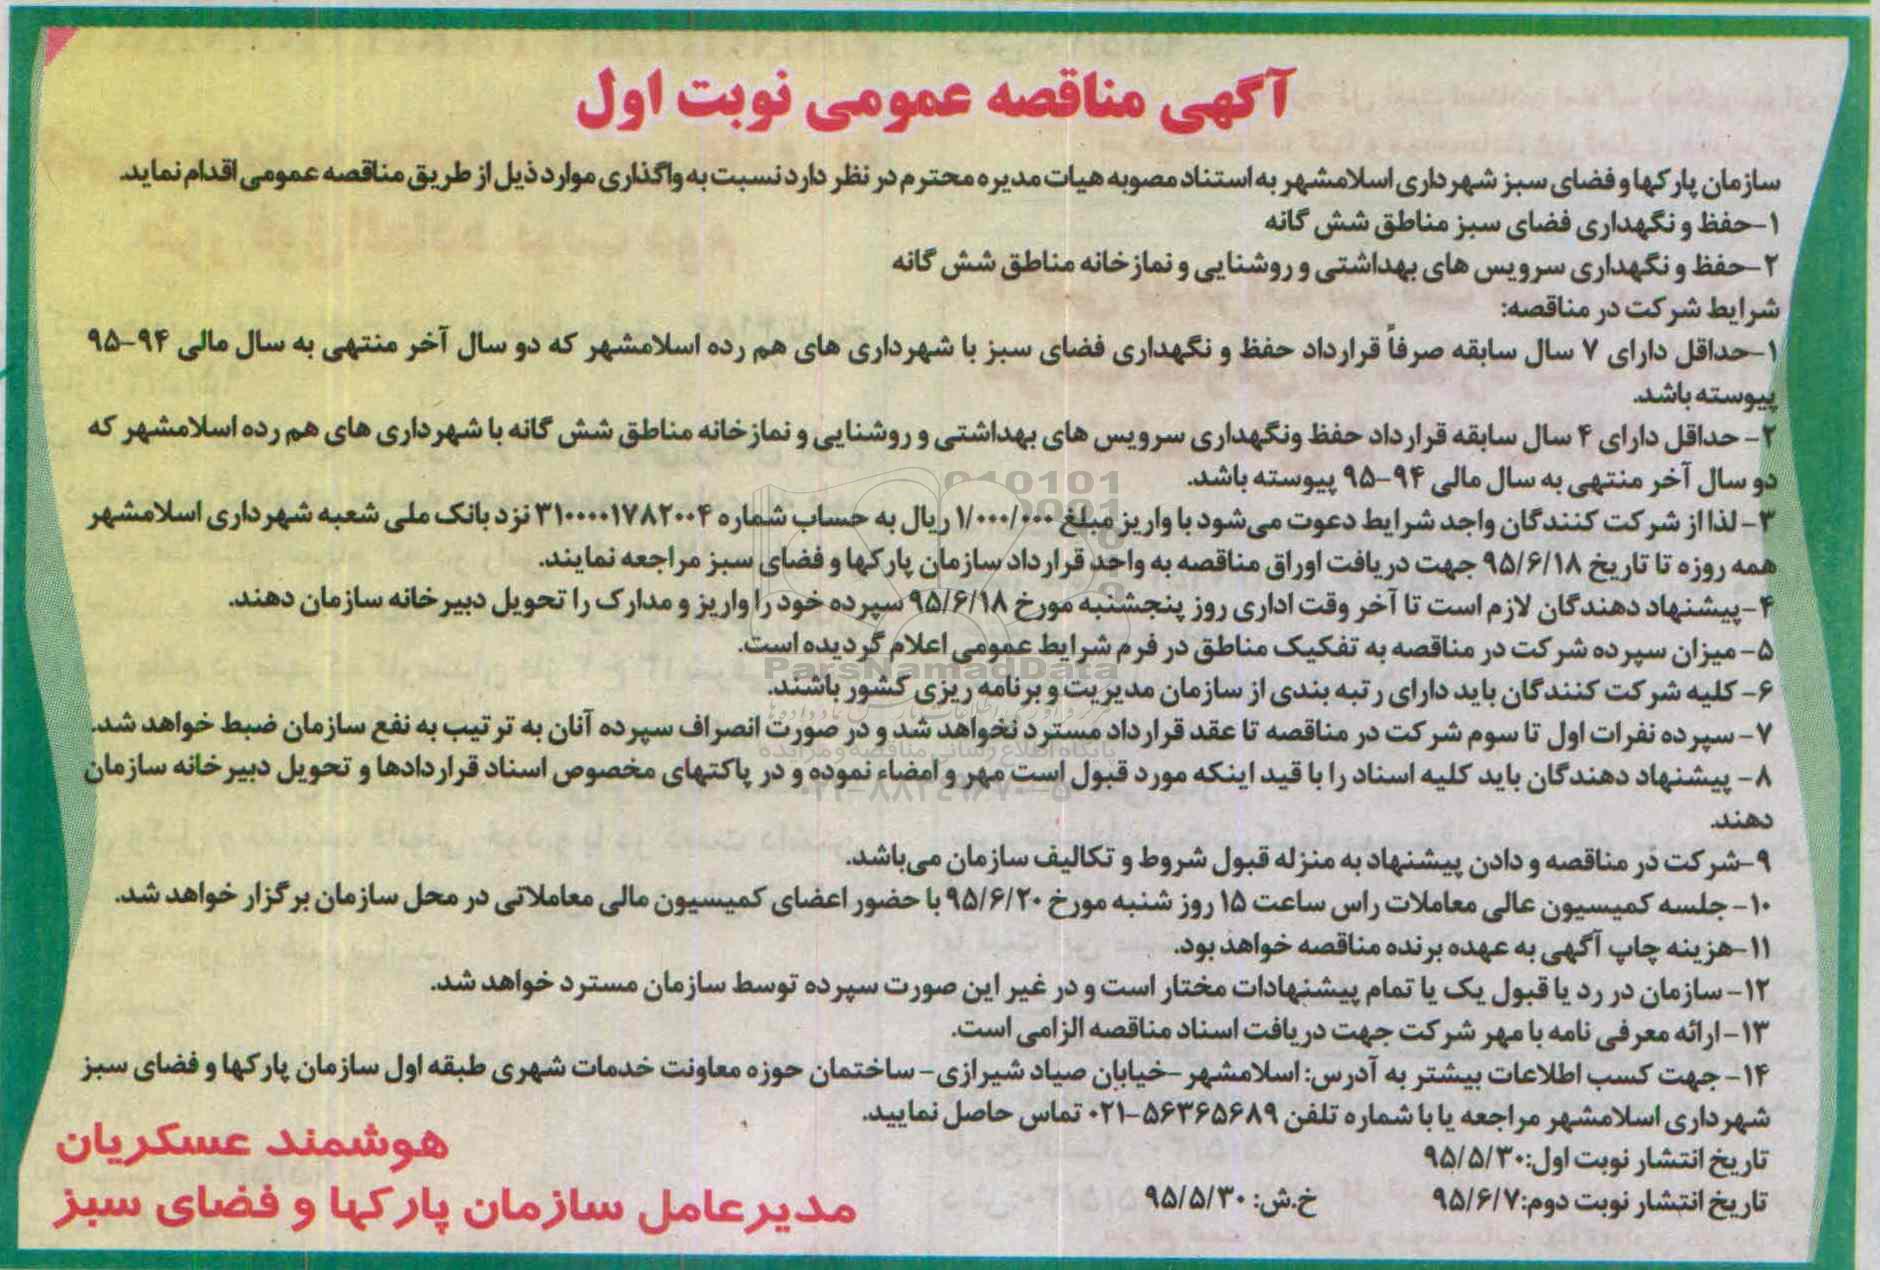 آگهی مناقصه عمومی نوبت اول
سازمان پارکها و فضای سبز شهرداری اسلامشهر به استناد مصوبه هیات مدیره محترم در نظر دارد نسبت به واگذاری موارد ذیل از طریق مناقصه عمومی اقدام نماید.
۱-حفظ و نگهداری فضای سبز مناطق شش گانه
۲-حفظ و نگهداری سرویس های بهداشتی و روشنایی و نمازخانه مناطق شش گانه
شرایط شرکت در مناقصه:
۱-حداقل دارای ۷ سال سابقه صرفاً قرارداد حفظ و نگهداری فضای سبز با شهرداری های هم رده اسلامشهر که دو سال آخر منتهی به سال مالی ۹۴-۹۵
پیوسته باشد.
۲- حداقل دارای ۴ سال سابقه قرارداد حفظ ونگهداری سرویس های بهداشتی و روشنایی و نمازخانه مناطق شش گانه با شهرداری های هم رده اسلامشهر که
دو سال آخر منتهی به سال مالی ۹۴-۹۵ پیوسته باشد.
۳- لذا از شرکت کنندگان واجد شرایط دعوت می‌شود با واریز مبلغ ۱/۰۰۰/۰۰۰ ریال به حساب شماره ۳۱۰۰۰۰۱۷۸۲۰۰۴ نزد بانک ملی شعبه شهرداری اسلامشهر
همه روزه تا تاریخ ۹۵/۶/۱۸ جهت دریافت اوراق مناقصه به واحد قرارداد سازمان پارکها و فضای سبز مراجعه نمایند.
۴-پیشنهاد دهندگان لازم است تا آخر وقت اداری روز پنجشنبه مورخ ۹۵/۶/۱۸ سپرده خود را واریز و مدارک را تحویل دبیرخانه سازمان دهند.
۵- میزان سپرده شرکت در مناقصه به تفکیک مناطق در فرم شرایط عمومی اعلام گردیده است.
۶- کلیه شرکت کنندگان باید دارای رتبه بندی از سازمان مدیریت و برنامه ریزی کشور باشند.
۷- سپرده نفرات اول تا سوم شرکت در مناقصه تا عقد قرارداد مسترد نخواهد شد و در صورت انصراف سپرده آنان به ترتیب به نفع سازمان ضبط خواهد شد.
۸- پیشنهاد دهندگان باید کلیه اسناد را با قید اینکه مورد قبول است مهر و امضاء نموده و در پاکتهای مخصوص اسناد قراردادها و تحویل دبیرخانه سازمان
دهند.
۹-شرکت در مناقصه و دادن پیشنهاد به منزله قبول شروط و تکالیف سازمان می‌باشد.
۱۰- جلسه کمیسیون عالی معاملات راس ساعت ۱۵ روز شنبه مورخ ۹۵/۶/۲۰ با حضور اعضای کمیسیون مالی معاملاتی در محل سازمان برگزار خواهد شد.
۱۱-هزینه چاپ آگهی به عهده برنده مناقصه خواهد بود.
۱۲- سازمان در رد یا قبول یک یا تمام پیشنهادات مختار است و در غیر این صورت سپرده توسط سازمان مسترد خواهد شد.
۱۳- ارائه معرفی نامه با مهر شرکت جهت دریافت اسناد مناقصه الزامی است.
۱۴- جهت کسب اطلاعات بیشتر به آدرس: اسلامشهر -خیابان صیاد شیرازی- ساختمان حوزه معاونت خدمات شهری طبقه اول سازمان پارکها و فضای سبز
شهرداری اسلامشهر مراجعه یا با شماره تلفن ۵۶۳۶۵۶۸۹-۰۲۱ تماس حاصل نمایید.
تاریخ انتشار نوبت اول: ۹۵/۵/۳۰
تاریخ انتشار نوبت دوم: ۹۵/۶/۷ خ.ش: ۹۵/۵/۳۰
هوشمند عسکریان
مدیرعامل سازمان پارکها و فضای سبز
ParsNamadData
پایگاه اطلاع رسانی مناقصه و مزایده